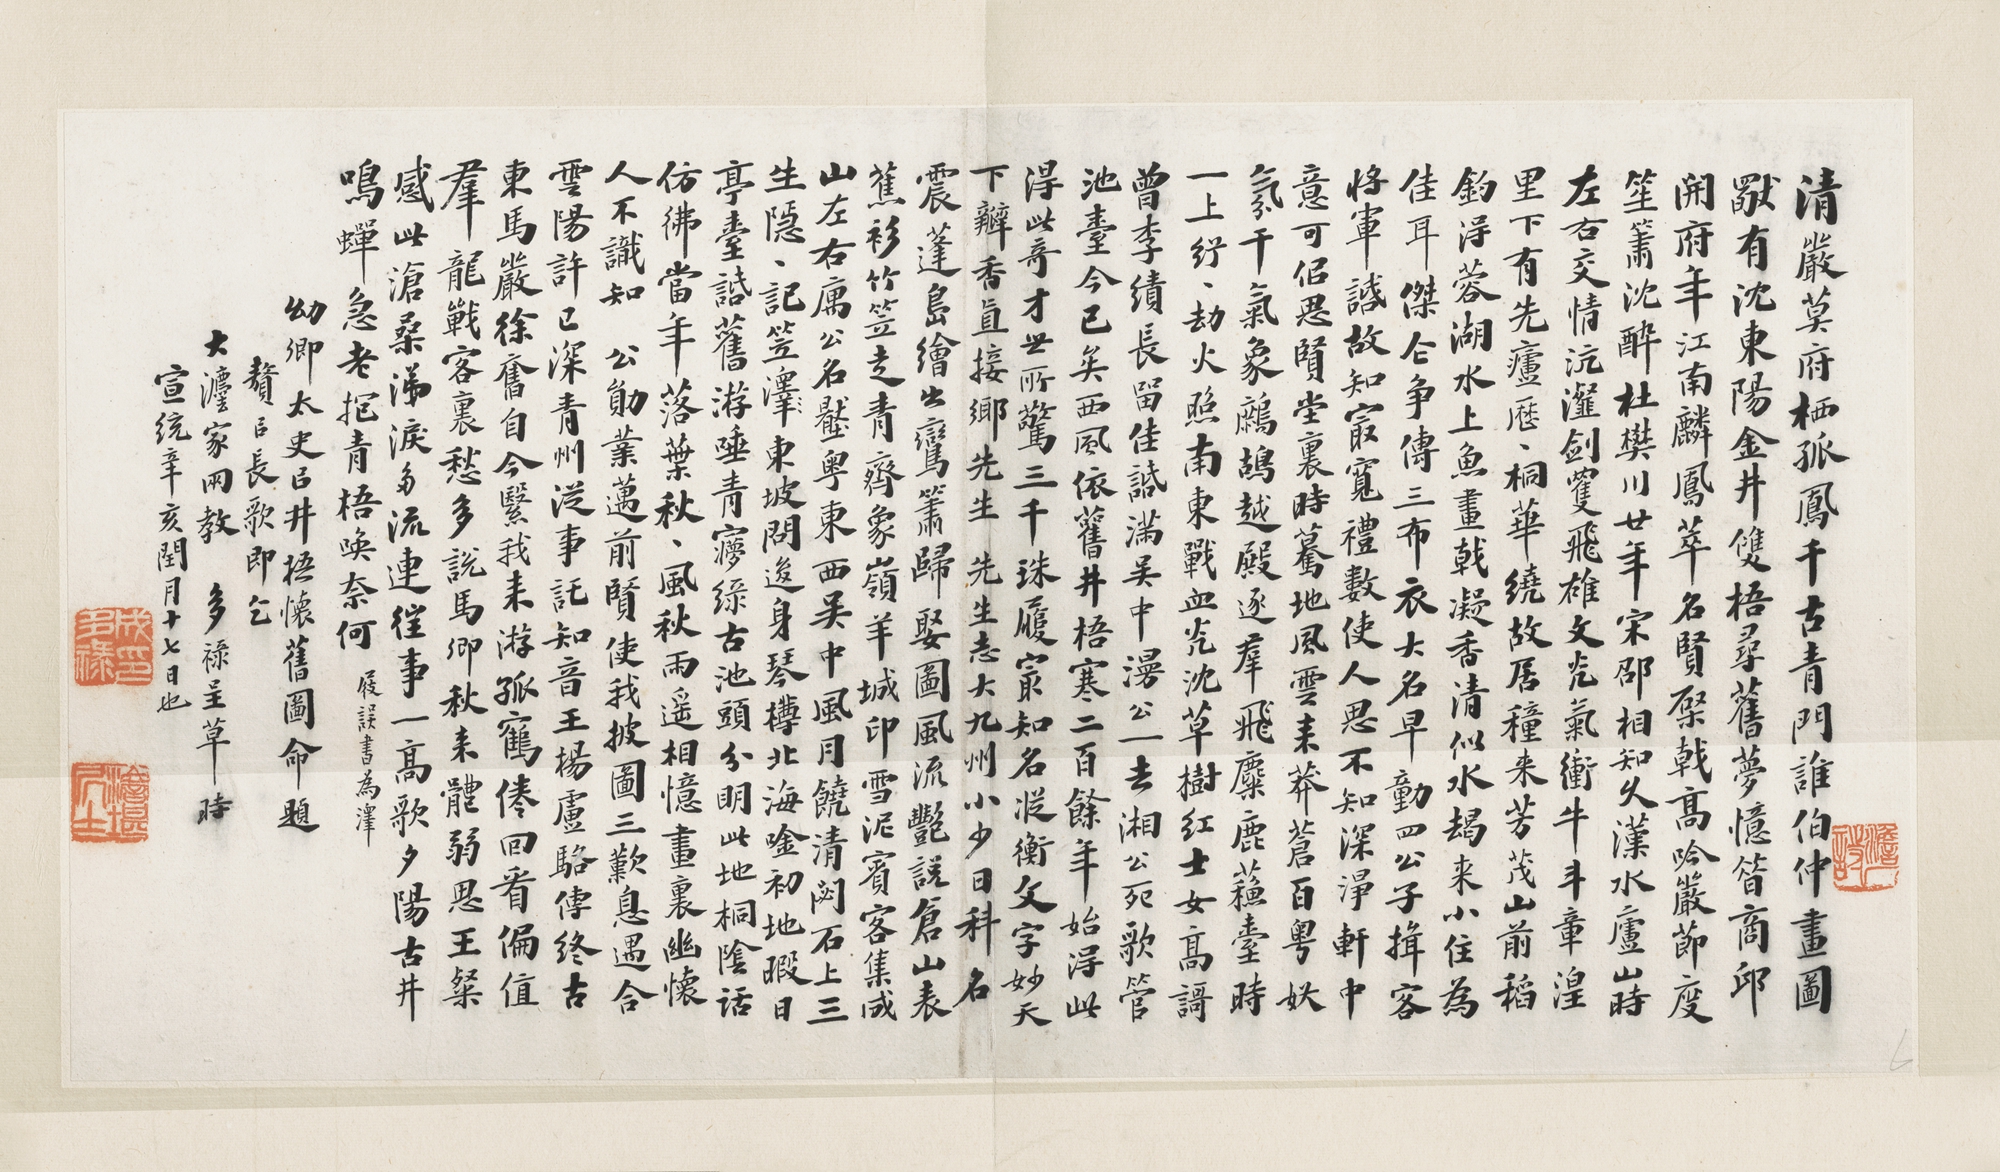 清嚴莫府栖孤鳳千古青門誰伯仲畫圖
獸有沈東陽金井雙梧尋舊夢憶昔商邱
開府年江南麟鳳萃名賢棨戟高吟嚴節度
笙簫沈醉杜樊川廿年宋邵相知久漢水廬山時
左右交情沆瀣劍雙飛雄文光氣衝牛斗章湟
里下有先廬歷、桐華繞故居種来芳茂山前稻
釣得蓉湖水上魚畫戟凝香清似水朅来小住為
佳耳傑仝争傳三布衣大名早動四公子揖客
將軍誰故知寂寬禮數使人思不知深淨軒中
意可侶思賢堂裏時驀地風雲来莽蒼百粵妖
氛干氣象鷓鴣越殿逐羣飛麋鹿蘇臺時
一上紛、劫火照南東戰血光沈草樹紅士女高謌
曾李績長留佳話滿吴中湯公一去湘公死歌管
池臺今已矣西風依舊井梧寒二百餘年始得此
得此奇才世所驚三千珠履寂知名漎衡文字妙天
下瓣香直接鄉先生先生志大九州小少日科名
震蓬島繪出鸞簫歸娶圖風流艷說倉山表
蕉衫竹笠走青齊象嶺羊城印雪泥賓客集成
山左右厲公名壓粵東西吴中風月饒清閟石上三
生隱、記笠澤東坡問後身琴樽北海唫初地暇日
亭臺話舊游唾青瘮綠古池頭分明此地桐陰話
仿彿當年落葉秋、風秋雨遥相憶畫裏幽懷
人不識知公勛業邁前賢使我披圖三歎息遇合
雲陽許已深青州從事託知音王楊盧駱傳終古
東馬嚴徐奮自今翳我来游孤寫倦回看偏值
羣龍戰客裏愁多說馬卿秋来體弱思王粲
感此滄桑涕淚多流連往事一高歌夕陽古井
鳴蟬急老抱青梧喚奈何展誤書為澤
幼卿太史㠯井梧懷舊圖命題
贅㠯長歌即乞
大瀍家兩教多祿呈草時
宣統辛亥閏月十七日也
成多祿印
澹堪居士